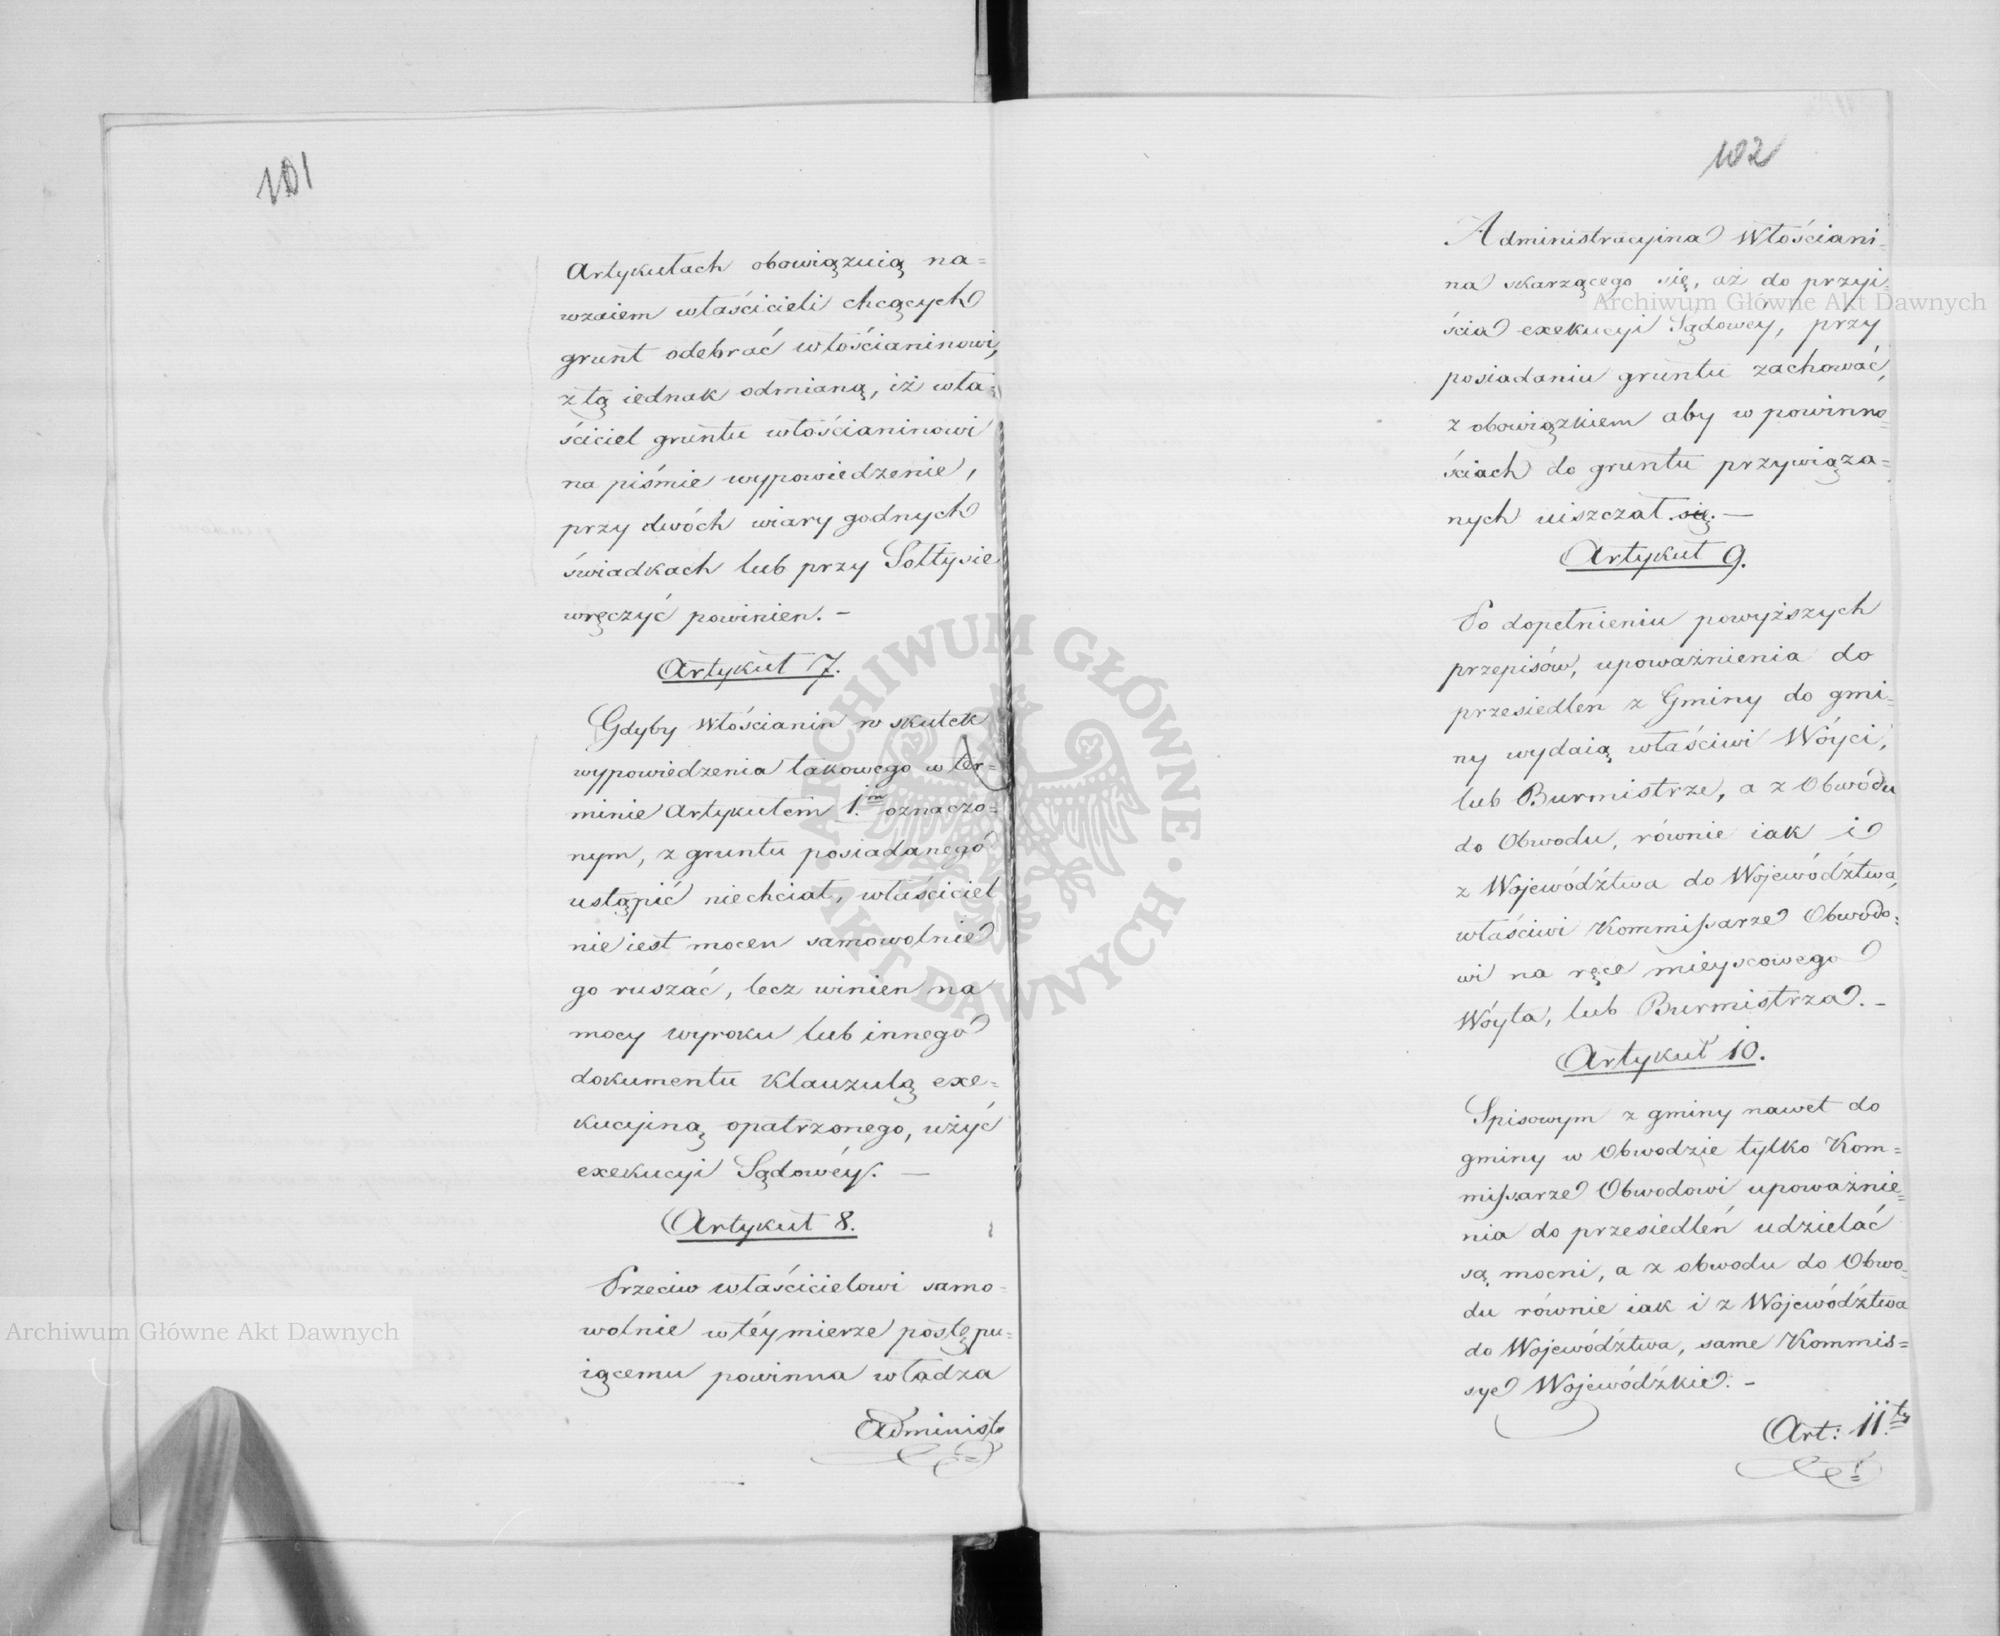 101
Artykułach obowiązuią na=
wzaiem właścicieli chcących
grunt odebrać włościaninowi,
z tą iednak odmianą, iż wła=
ściciel gruntu włościaninowi
na piśmie wypowiedzenie,
przy dwóch wiary godnych
świadkach lub przy Sołtysie
wręczyć powinien. –
Artykuł 7.
Gdyby Włościanin w skutek
wypowiedzenia takowego w ter=
minie Artykułem 1.m oznaczo=
nym, z gruntu posiadanego
ustąpić niechciał, właściciel
nie iest mocen samowolnie
go ruszać, lecz winien na
mocy wyroku lub innego
dokumentu Klauzulą exe=
kucyiną opatrzonego, użyć
exekucyi Sądowéy. —
Artykuł 8.
Przeciw właścicielowi samo=
wolnie w téy mierze postępu=
iącemu powinna władza
Administr
102
Administracyina Włościani=
na skarzącego się, aż do przyi=
ścia exekucyi Sądowey, przy
posiadaniu gruntu zachować,
z obowiązkiem aby w powinno=
ściach do gruntu przywiąza=
nych uiszczał się. —
Artykuł 9.
Po dopełnieniu powyższych
przepisów, upoważnienia do
przesiedleń z Gminy do gmi=
ny wydaią właściwi Wóyci,
lub Burmistrze, a z Obwodu
do Obwodu, równie iak i
z Województwa do Województwa,
właściwi Kommissarze Obwodo=
wi na ręce mieyscowego
Wóyta, lub Burmistrza. –
Artykuł 10.
Spisowym z gminy nawet do
gminy w Obwodzie tylko Kom=
missarze Obwodowi upoważnie=
nia do przesiedleń udzielać
są mocni, a z obwodu do Obwo=
du równie iak i z Województwa
do Województwa, same Kommis=
sye Wojewódźkie. –
Art: 11.ty
Archiwum Główne Akt Dawnych
Archiwum Główne Akt Dawnych
ARCHIWUM GŁÓWNE · AKT DAWNYCH ·